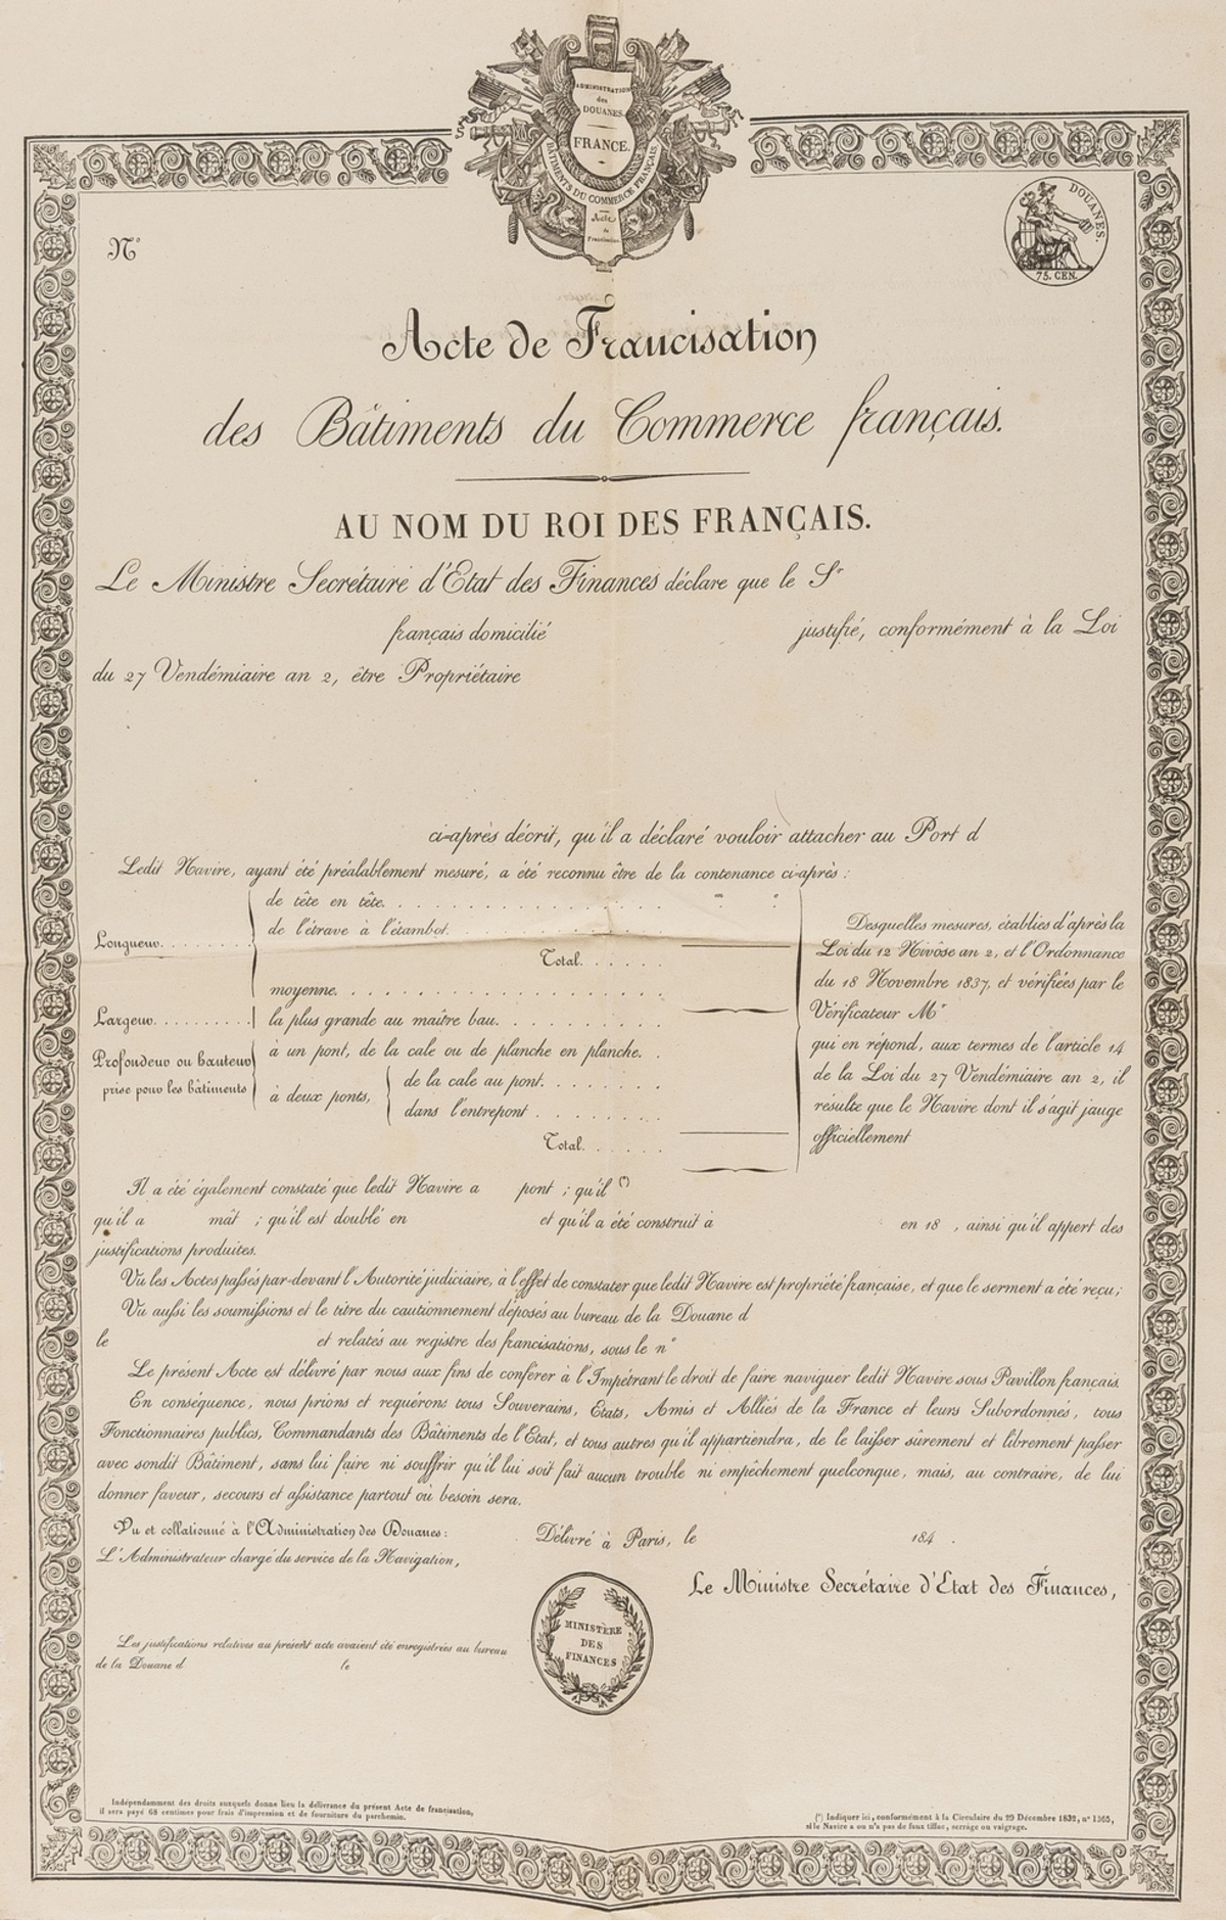 ADMINISTRATION
des
DOUANES.
FRANCE.
BÂTIMENTS DU COMMERCE FRANÇAIS.
Acte
de
Francisation.
Nº
DOUANES.
75. CEN.
Acte de Francisation
des Bâtiments du Commerce français.
AU NOM DU ROI DES FRANÇAIS.
Le Ministre Secrétaire d'Etat des Finances déclare que le Sr
français domicilié justifié, conformément à la Loi
du 27 Vendémiaire an 2, être Propriétaire
ci-après décrit, qu'il a déclaré vouloir attacher au Port d
Ledit Navire, ayant été préalablement mesuré, a été reconnu être de la contenance ci-après :
Longueur
de tête en tête
de l'étrave à l'étambot
Total
moyenne
Largeur
la plus grande au maître bau
Profondeur ou hauteur
prise pour les bâtiments
à un pont, de la cale ou de planche en planche
à deux ponts,
de la cale au pont
dans l'entrepont
Total
Desquelles mesures, établies d'après la
Loi du 12 Nivôse an 2, et l'Ordonnance
du 18 Novembre 1837, et vérifiées par le
Vérificateur Mr
qui en répond, aux termes de l'article 14
de la Loi du 27 Vendémiaire an 2, il
résulte que le Navire dont il s'agit jauge
officiellement
Il a été également constaté que ledit Navire a pont ; qu'il (*)
qu'il a mât ; qu'il est doublé en et qu'il a été construit à en 18 , ainsi qu'il appert des
justifications produites.
Vu les Actes passés par-devant l'Autorité judiciaire, à l'effet de constater que ledit Navire est propriété française, et que le serment a été reçu ;
Vu aussi les soumissions et le titre du cautionnement déposés au bureau de la Douane d
le et relatés au registre des francisations, sous le nº
Le présent Acte est délivré par nous aux fins de conférer à l'Impétrant le droit de faire naviguer ledit Navire sous Pavillon français.
En conséquence, nous prions et requérons tous Souverains, Etats, Amis et Alliés de la France et leurs Subordonnés, tous
Fonctionnaires publics, Commandants des Bâtiments de l'Etat, et tous autres qu'il appartiendra, de le laisser sûrement et librement passer
avec sondit Bâtiment, sans lui faire ni souffrir qu'il lui soit fait aucun trouble ni empêchement quelconque, mais, au contraire, de lui
donner faveur, secours et assistance partout où besoin sera.
Vu et collationné à l'Administration des Douanes:
L'Administrateur chargé du service de la Navigation,
Délivré à Paris, le 184 .
Le Ministre Secrétaire d'Etat des Finances,
MINISTÈRE
DES
FINANCES
Les justifications relatives au présent acte avaient été enregistrées au bureau
de la Douane d le
Indépendamment des droits auxquels donne lieu la délivrance du présent Acte de francisation,
il sera payé 68 centimes pour frais d'impression et de fourniture du parchemin.
(*) Indiquer ici, conformément à la Circulaire du 29 Décembre 1832, nº 1365,
si le Navire a ou n'a pas de faux tillac, serrage ou vaigrage.